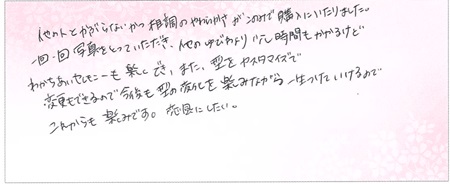 他の人とかぶらないかつ相談のやわらかさがこのみで購入にいたりました。
一回一回写真をとっていただき、他のゆびわより少し時間もかかるけど
わかちあいセレモニーも楽しくでき、また、型をカスタマイズで
変更もできるので今後も型の変化を楽しみながら一生つけていけるので
これからも楽しみです。